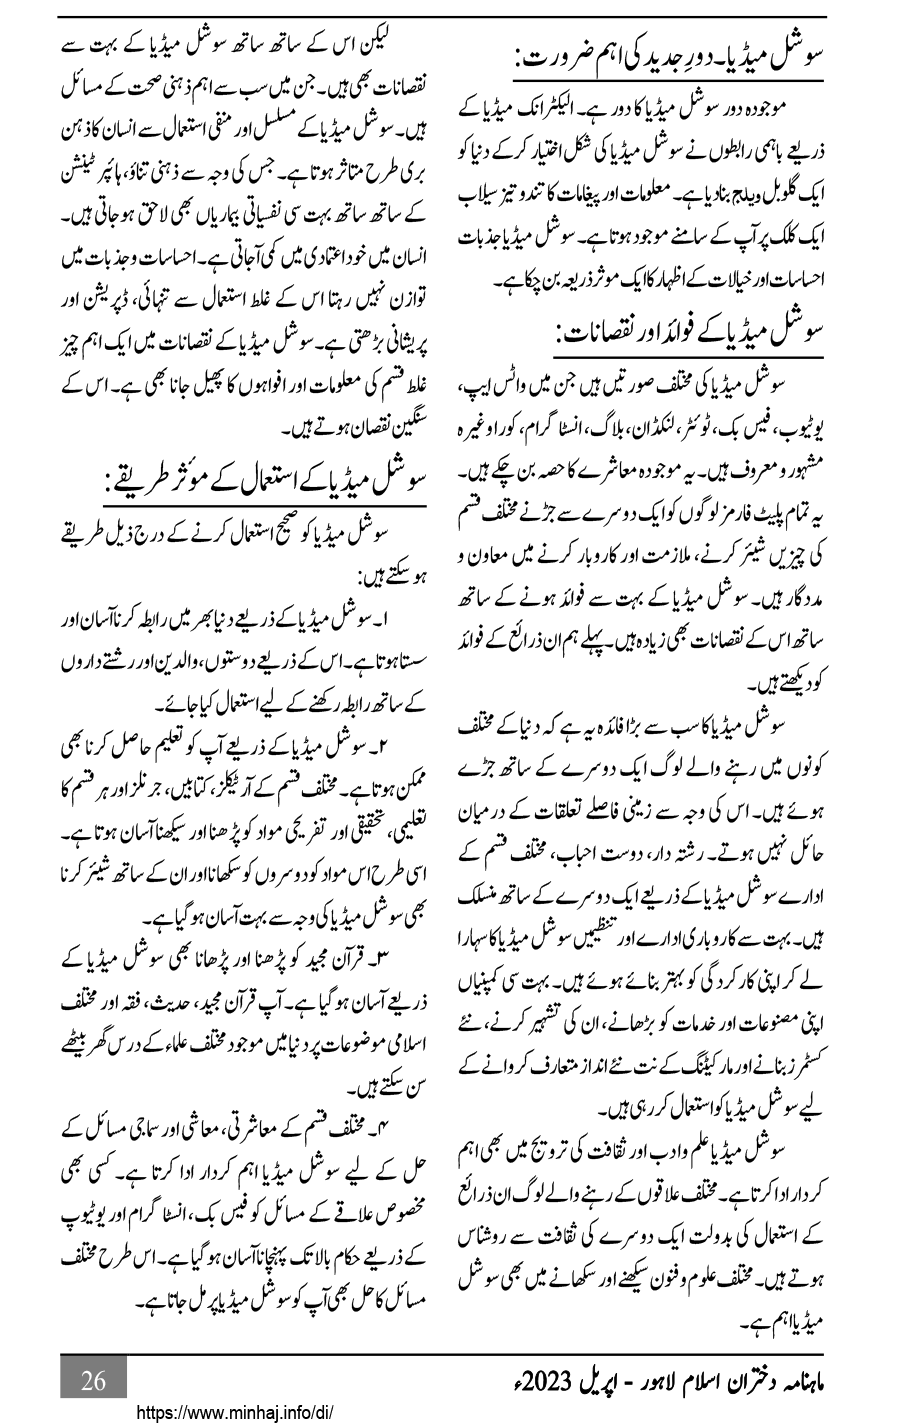 سوشل میڈیا۔دورِ جدید کی اہم ضرورت:
موجودہ دور سوشل میڈیا کا دور ہے۔ الیکٹرانک میڈیا کے
ذریعے باہمی رابطوں نے سوشل میڈیا کی شکل اختیار کرکے دنیا کو
ایک گلوبل ویلج بنادیا ہے۔ معلومات اور پیغامات کا تند و تیز سیلاب
ایک کلک پر آپ کے سامنے موجود ہوتا ہے۔ سوشل میڈیا جذبات
احساسات اور خیالات کے اظہار کا ایک موثر ذریعہ بن چکا ہے۔
سوشل میڈیا کے فوائد اور نقصانات:
سوشل میڈیا کی مختلف صورتیں ہیں جن میں واٹس ایپ،
یوٹیوب، فیس بک، ٹوئٹر، لنکڈان، بلاگ، انسٹا گرام، کورا وغیرہ
مشہور و معروف ہیں۔ یہ موجودہ معاشرے کا حصہ بن چکے ہیں۔
یہ تمام پلیٹ فارمز لوگوں کو ایک دوسرے سے جڑنے مختلف قسم
کی چیزیں شیئر کرنے، ملازمت اور کاروبار کرنے میں معاون و
مددگار ہیں۔ سوشل میڈیا کے بہت سے فوائد ہونے کے ساتھ
ساتھ اس کے نقصانات بھی زیادہ ہیں۔ پہلے ہم ان ذرائع کے فوائد
کو دیکھتے ہیں۔
سوشل میڈیا کا سب سے بڑا فائدہ یہ ہے کہ دنیا کے مختلف
کونوں میں رہنے والے لوگ ایک دوسرے کے ساتھ جڑے
ہوئے ہیں۔ اس کی وجہ سے زمینی فاصلے تعلقات کے درمیان
حائل نہیں ہوتے۔ رشتہ دار، دوست احباب، مختلف قسم کے
ادارے سوشل میڈیا کے ذریعے ایک دوسرے کے ساتھ منسلک
ہیں۔ بہت سے کاروباری ادارے اور تنظیمیں سوشل میڈیا کا سہارا
لے کر اپنی کارکردگی کو بہتر بنائے ہوئے ہیں۔ بہت سی کمپنیاں
اپنی مصنوعات اور خدمات کو بڑھانے، ان کی تشہیر کرنے، نئے
کسٹمرز بنانے اور مارکیٹنگ کے نت نئے انداز متعارف کروانے کے
لیے سوشل میڈیا کو استعمال کررہی ہیں۔
سوشل میڈیا علم و ادب اور ثقافت کی ترویج میں بھی اہم
کردار ادا کرتا ہے۔ مختلف علاقوں کے رہنے والے لوگ ان ذرائع
کے استعمال کی بدولت ایک دوسرے کی ثقافت سے روشناس
ہوتے ہیں۔ مختلف علوم و فنون سیکھنے اور سکھانے میں بھی سوشل
میڈیا اہم ہے۔
لیکن اس کے ساتھ ساتھ سوشل میڈیا کے بہت سے
نقصانات بھی ہیں۔ جن میں سب سے اہم ذہنی صحت کے مسائل
ہیں۔ سوشل میڈیا کے مسلسل اور منفی استعمال سے انسان کا ذہن
بری طرح متاثر ہوتا ہے۔ جس کی وجہ سے ذہنی تناؤ، ہائپر ٹینشن
کے ساتھ ساتھ بہت سی نفسیاتی بیماریاں بھی لاحق ہوجاتی ہیں۔
انسان میں خود اعتمادی میں کمی آجاتی ہے۔ احساسات و جذبات میں
توازن نہیں رہتا اس کے غلط استعمال سے تنہائی، ڈپریشن اور
پریشانی بڑھتی ہے۔ سوشل میڈیا کے نقصانات میں ایک اہم چیز
غلط قسم کی معلومات اور افواہوں کا پھیل جانا بھی ہے۔ اس کے
سنگین نقصان ہوتے ہیں۔
سوشل میڈیا کے استعمال کے مؤثر طریقے:
سوشل میڈیا کو صحیح استعمال کرنے کے درج ذیل طریقے
ہوسکتے ہیں:
۱۔ سوشل میڈیا کے ذریعے دنیا بھر میں رابطہ کرنا آسان اور
سستا ہوتا ہے۔ اس کے ذریعے دوستوں، والدین اور رشتے داروں
کے ساتھ رابطہ رکھنے کے لیے استعمال کیا جائے۔
۲۔ سوشل میڈیا کے ذریعے آپ کو تعلیم حاصل کرنا بھی
ممکن ہوتا ہے۔ مختلف قسم کے آرٹیکلز، کتابیں، جرنلز اور ہر قسم کا
تعلیمی، تحقیقی اور تفریحی مواد کو پڑھنا اور سیکھنا آسان ہوتا ہے۔
اسی طرح اس مواد کو دوسروں کو سکھانا اور ان کے ساتھ شیئر کرنا
بھی سوشل میڈیا کی وجہ سے بہت آسان ہوگیا ہے۔
۳۔ قرآن مجید کو پڑھنا اور پڑھانا بھی سوشل میڈیا کے
ذریعے آسان ہوگیا ہے۔ آپ قرآن مجید، حدیث، فقہ اور مختلف
اسلامی موضوعات پر دنیا میں موجود مختلف علماء کے درس گھر بیٹھے
سن سکتے ہیں۔
۴۔ مختلف قسم کے معاشرتی، معاشی اور سماجی مسائل کے
حل کے لیے سوشل میڈیا اہم کردار ادا کرتا ہے۔ کسی بھی
مخصوص علاقے کے مسائل کو فیس بک، انسٹا گرام اور یوٹیوپ
کے ذریعے حکام بالا تک پہنچانا آسان ہوگیا ہے۔ اس طرح مختلف
مسائل کا حل بھی آپ کو سوشل میڈیا پر مل جاتا ہے۔
ماہنامہ دختران اسلام لاہور - اپریل 2023ء
26
https://www.minhaj.info/di/